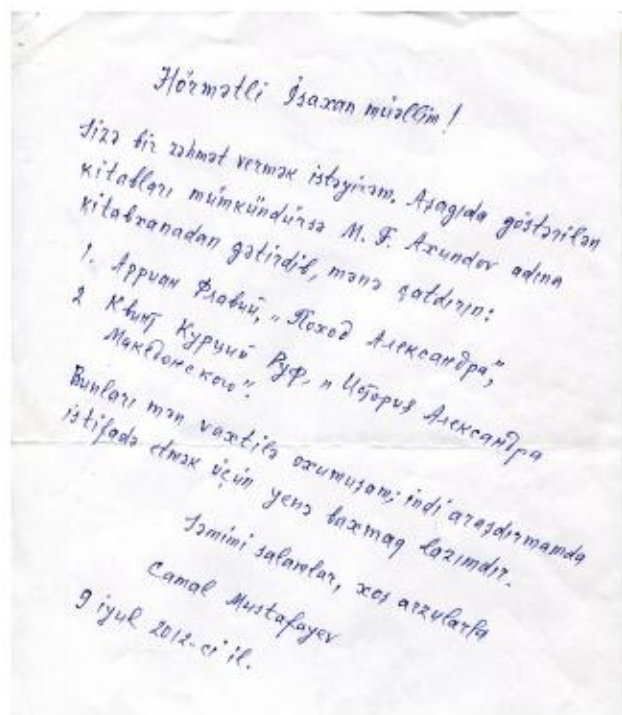 Hörmətli İsaxan müəllim!
Sizə bir zəhmət vermək istəyirəm. Aşağıda göstərilən
kitabları mümkündürsə M. F. Axundov adına
kitabxanadan gətirdib, mənə çatdırın:
1. Арриан Флавий, „Поход Александра";
2 Квинт Курций Руф. „История Александра
Македонского".
Bunları mən vaxtilə oxumuşam; indi araşdırmamda
istifadə etmək üçün yenə baxmaq lazımdır.
Səmimi salamlar, xoş arzularla
Camal Mustafayev
9 iyul 2012-ci il.